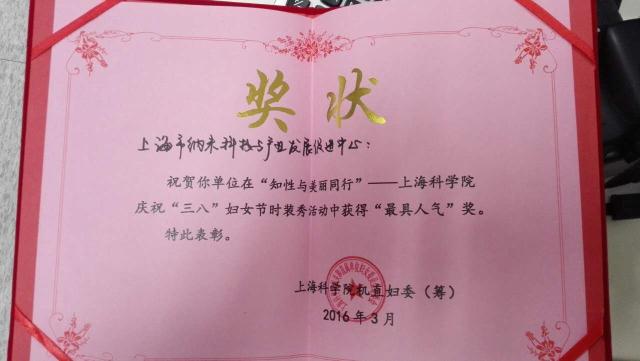 奖状
上海市纳米科技与产业发展促进中心：
祝贺你单位在“知性与美丽同行”——上海科学院
庆祝“三八”妇女节时装秀活动中获得“最具人气”奖。
特此表彰。
上海科学院机直妇委（筹）
2016年3月